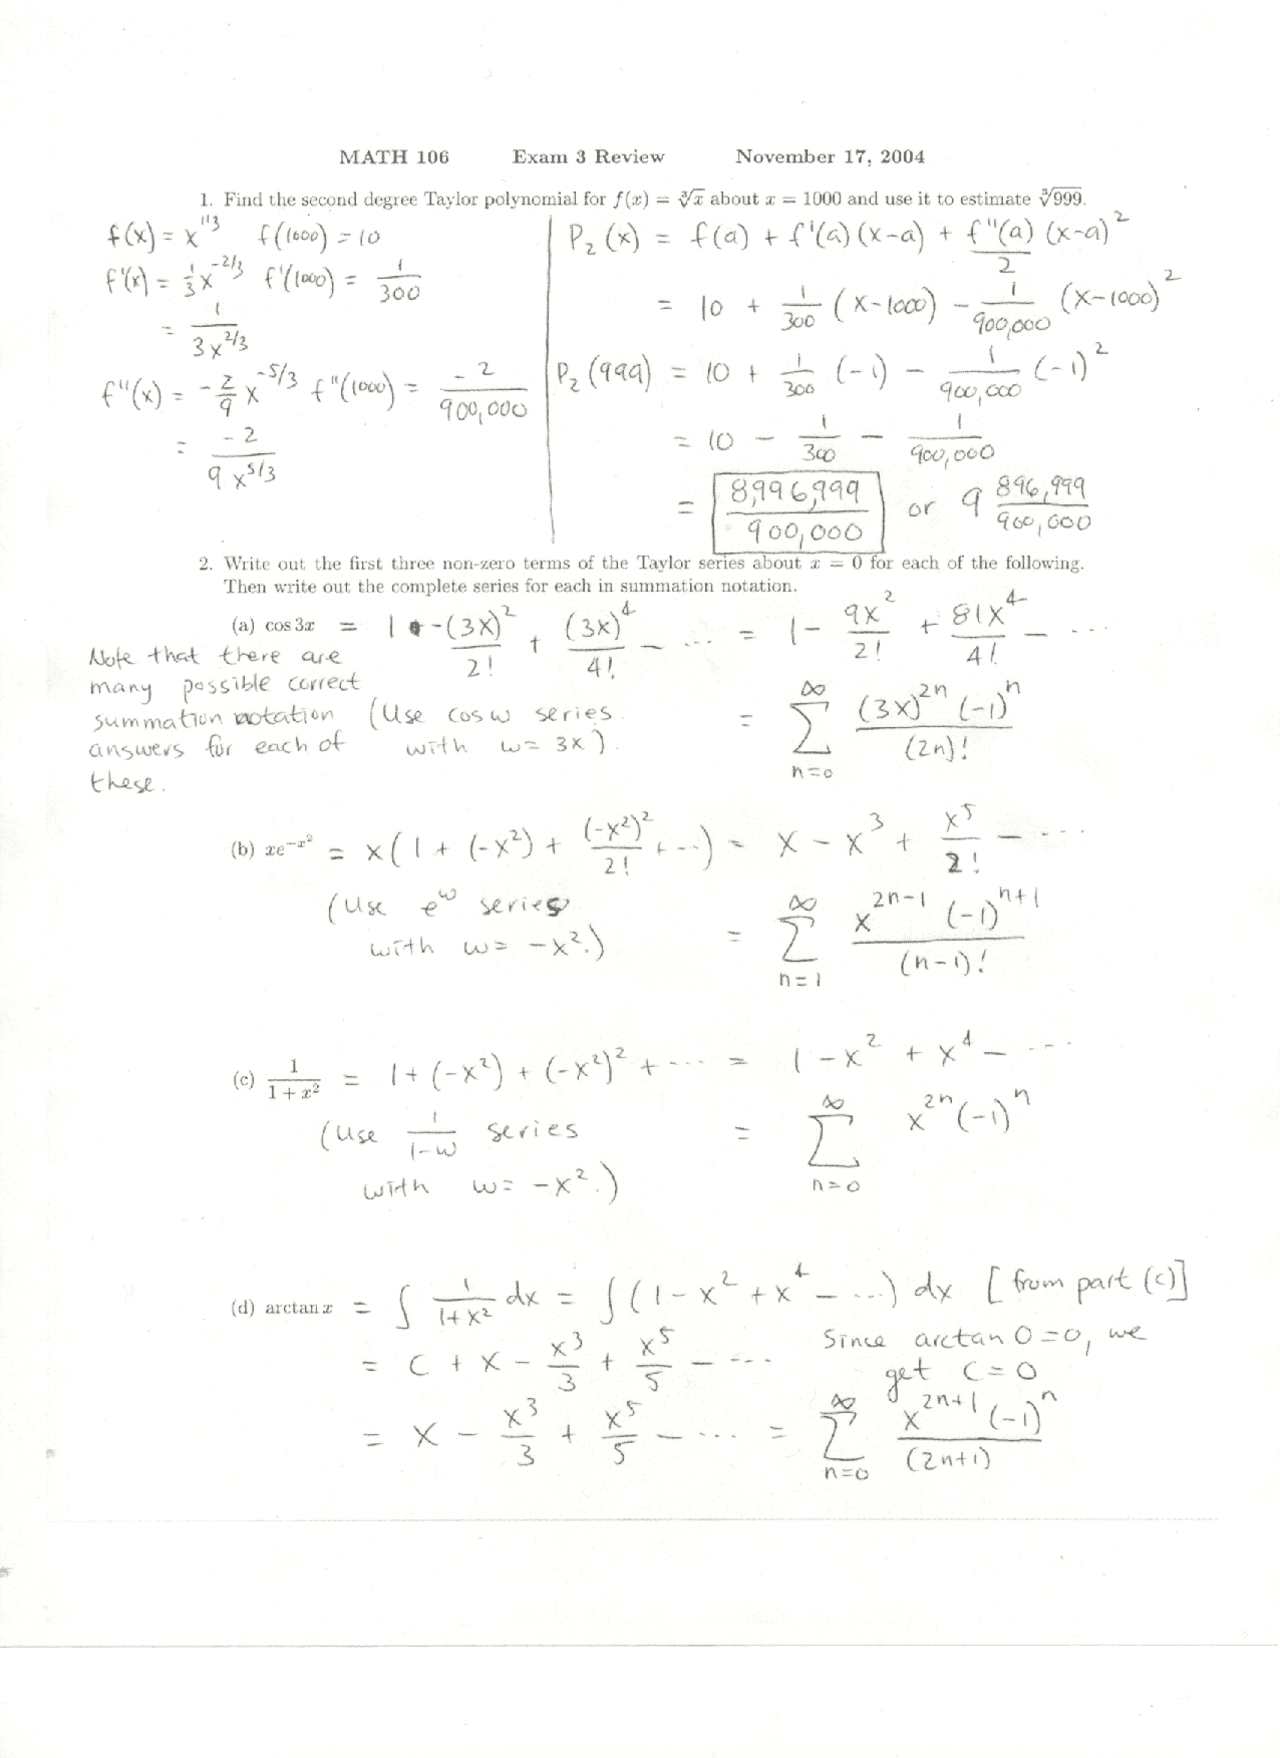 MATH 106 Exam 3 Review November 17, 2004
1. Find the second degree Taylor polynomial for f(x) = ∛x about x = 1000 and use it to estimate ∛999.
f(x) = x^{1/3} f(1000) = 10
f'(x) = 1/3 x^{-2/3} f'(1000) = 1/300
= 1/(3x^{2/3})
f''(x) = -2/9 x^{-5/3} f''(1000) = -2/900,000
= -2/(9x^{5/3})
P₂(x) = f(a) + f'(a)(x-a) + f''(a)/2 (x-a)²
= 10 + 1/300 (x-1000) - 1/900,000 (x-1000)²
P₂(999) = 10 + 1/300 (-1) - 1/900,000 (-1)²
= 10 - 1/300 - 1/900,000
= 8,996,999/900,000 or 9 896,999/900,000
2. Write out the first three non-zero terms of the Taylor series about x = 0 for each of the following.
Then write out the complete series for each in summation notation.
(a) cos 3x = 1 - (3x)²/2! + (3x)⁴/4! - ... = 1 - 9x²/2! + 81x⁴/4! - ...
Note that there are
many possible correct
summation notation
answers for each of
these.
(Use cos w series
with w = 3x).
= ∑_{n=0}^{∞} (3x)^{2n} (-1)^n/(2n)!
(b) xe^{-x²} = x(1 + (-x²) + (-x²)²/2! + ...) = x - x³ + x⁵/2! - ...
(Use e^w series
with w = -x².)
= ∑_{n=1}^{∞} x^{2n-1} (-1)^{n+1}/(n-1)!
(c) 1/(1 + x²) = 1 + (-x²) + (-x²)² + ... = 1 - x² + x⁴ - ...
(Use 1/(1-w) series
with w = -x².)
= ∑_{n=0}^{∞} x^{2n} (-1)^n
(d) arctan x = ∫ 1/(1+x²) dx = ∫ (1 - x² + x⁴ - ...) dx [from part (c)]
= C + x - x³/3 + x⁵/5 - ...
Since arctan 0 = 0, we
get C = 0
= x - x³/3 + x⁵/5 - ... = ∑_{n=0}^{∞} x^{2n+1} (-1)^n/(2n+1)